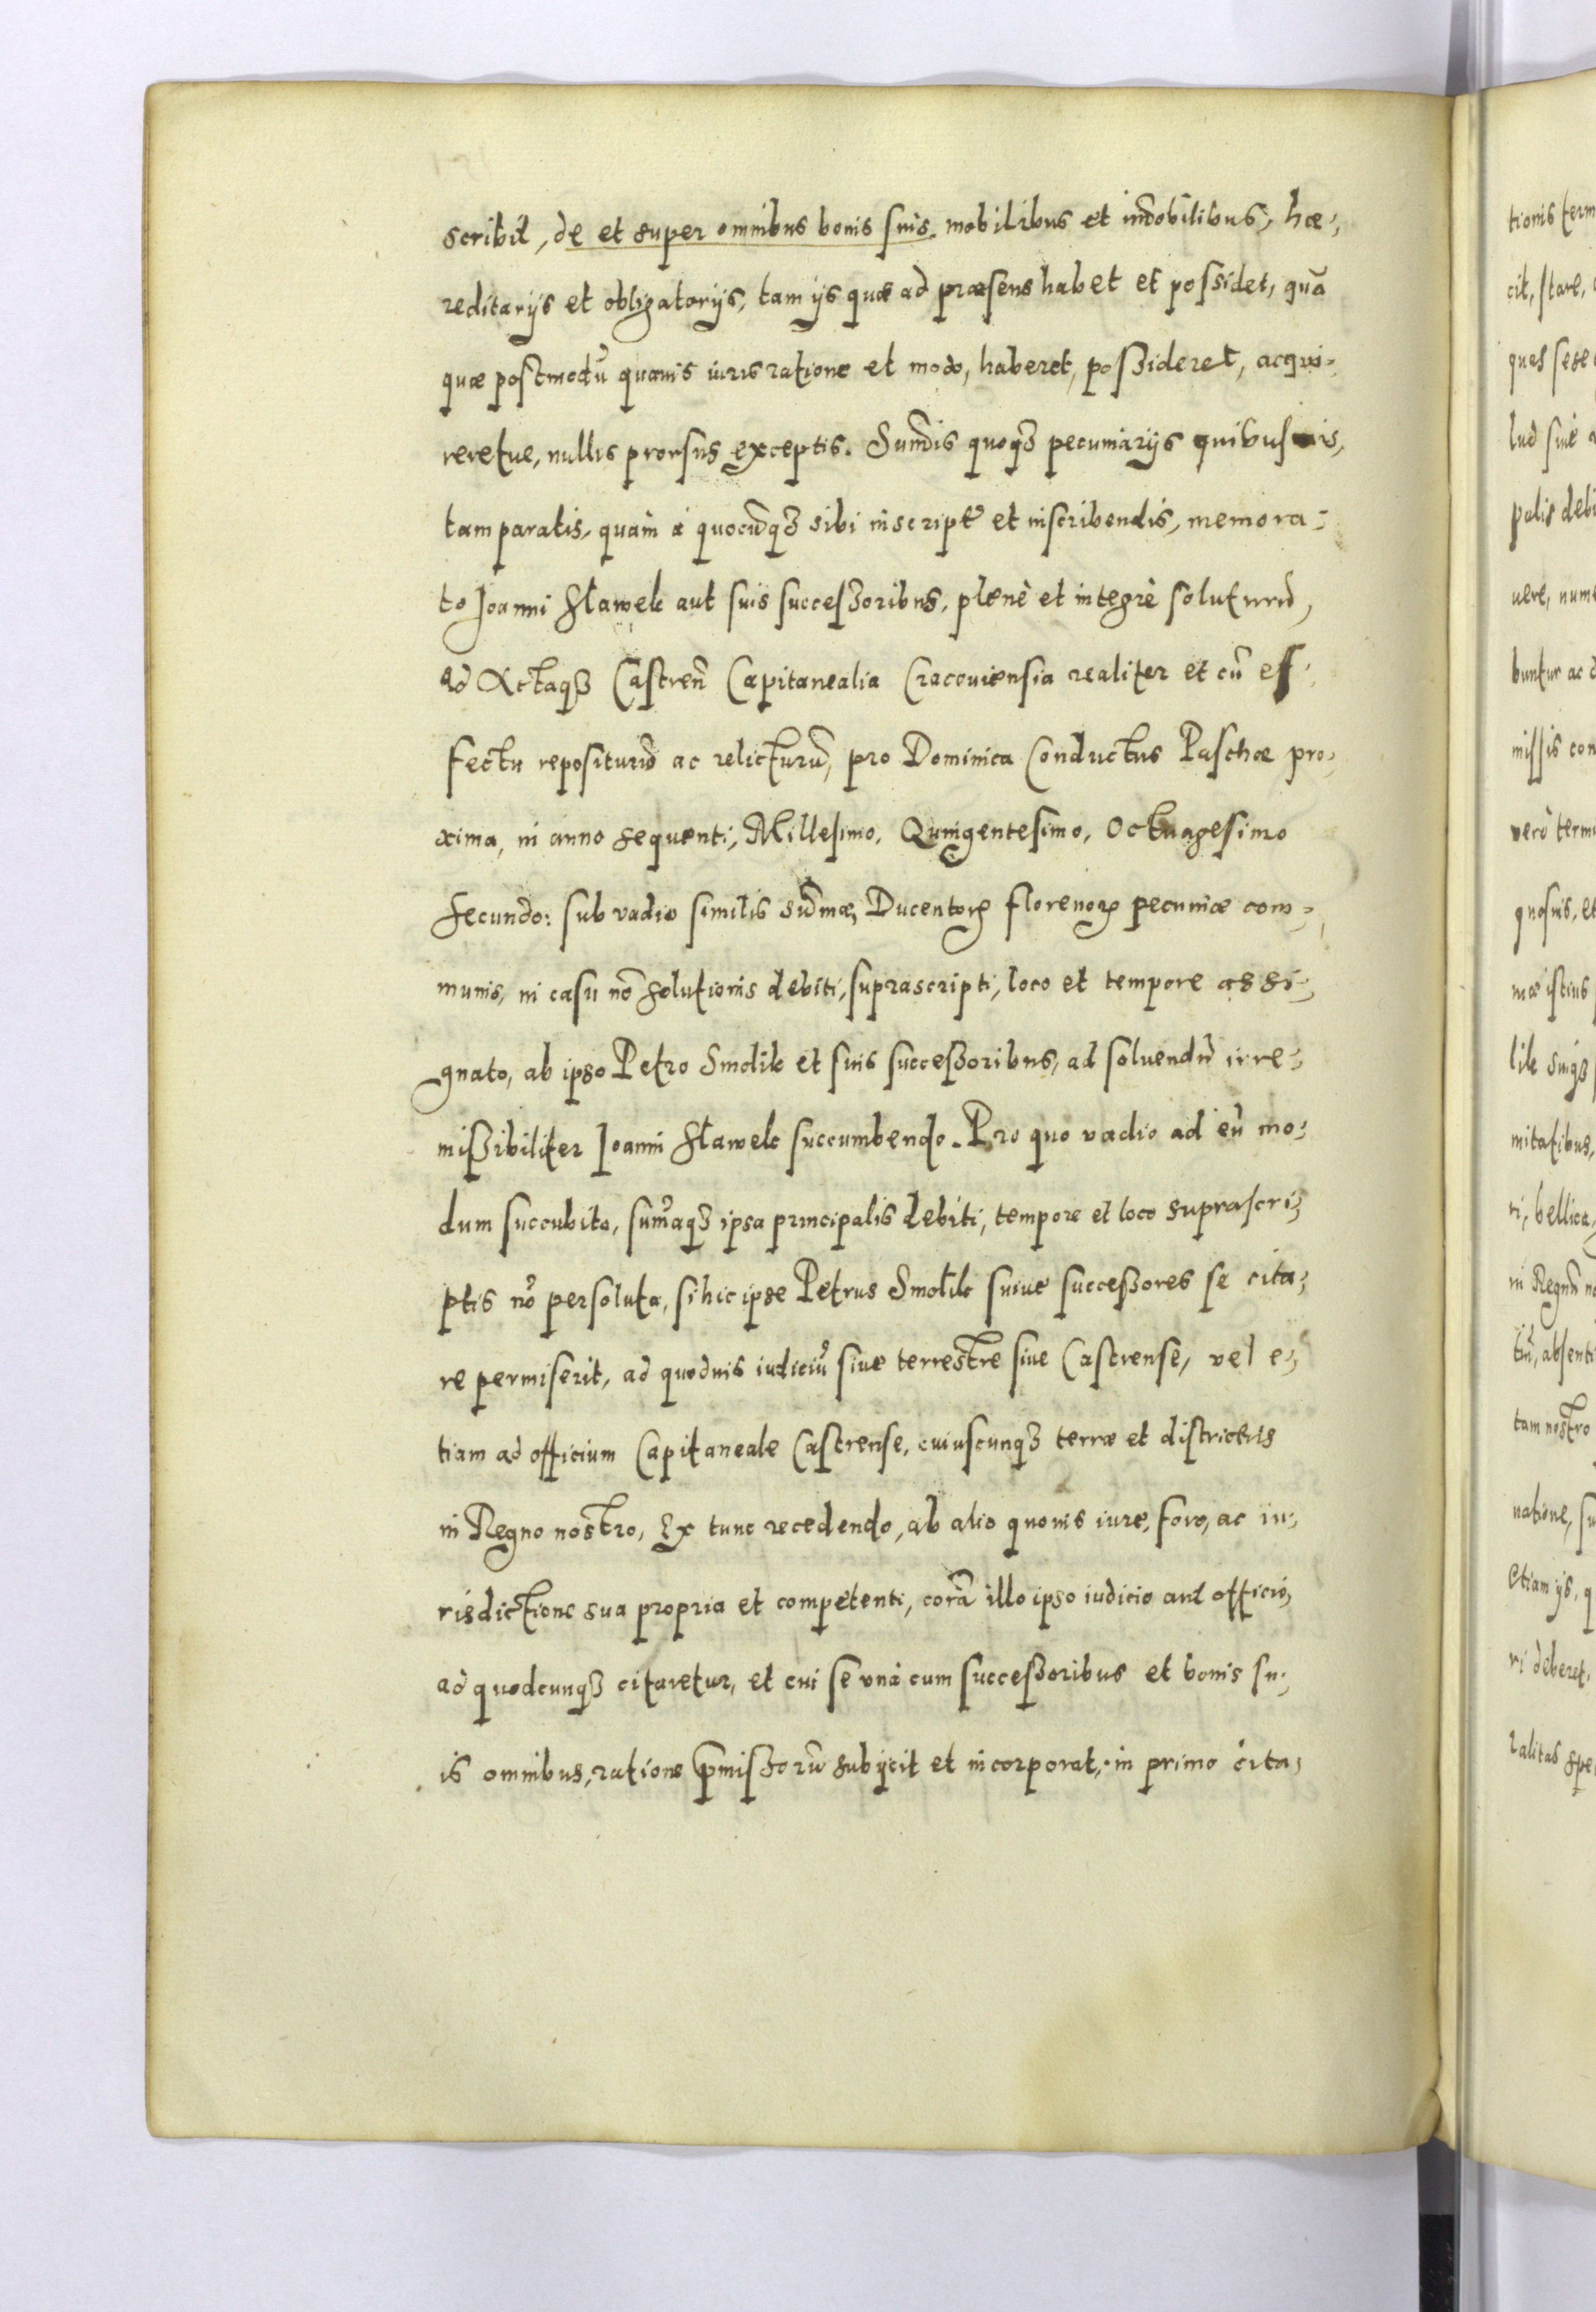 scribit, de et super omnibus bonis suis, mobilibus et im̃obilibus, hæ-
reditarijs et obligatorijs, tam ijs quæ ad præsens habet et possidet, quã
quæ postmodũ quauis iuris ratione et modo, haberet, possideret, acqui-
reretue, nullis prorsus exceptis. Sum̃is quoqꝫ pecuniarijs quibusuis,
tam paratis, quam à quocũqꝫ sibi inscript̃ et inscribendis, memora-
to Joanni Hawek aut suis successoribus, plenè et integrè soluturũ,
ad Actaqꝫ Castreñ Capitanealia Cracouiensia realiter et cũ ef-
fectu repositurũ ac relicturũ, pro Dominica Conductus Paschæ pro-
xima, in anno sequenti, Millesimo, Quingentesimo, Octuagesimo
secundo: sub vadio similis sum̃æ, Ducentoꝝ florenoꝝ pecuniæ com-
munis, in casu nõ solutionis debiti, suprascripti, loco et tempore assi-
gnato, ab ipso Petro Smolik et suis successoribus, ad soluendũ irre-
missibiliter Joanni Hawek succumbendo. Pro quo vadio ad eũ mo-
dum succubito, sum̃aqꝫ ipsa principalis debiti, tempore et loco suprascri-
ptis nõ persoluta, si hic ipse Petrus Smolik suiue successores se cita-
re permiserit, ad quoduis iudiciũ siue terrestre siue Castrense, vel e-
tiam ad officium Capitaneale Castrense, cuiuscunqꝫ terræ et districtus
in Regno nostro, Ex tunc recedendo, ab alio quouis iure, foro, ac iu-
risdictione sua propria et competenti, corã illo ipso iudicio aut officio,
ad quodcunqꝫ citaretur, et cui se vnà cum successoribus et bonis su-
is omnibus, ratione p̃missorũ subijcit et incorporat, in primo cita-
tionis term
cit, stare,
ques sese
lud siue
palis debi
uere, nume
buntur ac
missis con
verò term
quosuis, et
mæ istius
lik suiqꝫ
mitatibus,
ri, bellica,
in Regnũ
tũ, absenti
tam nostro
natione, su
etiam ijs, q
ri deberet,
ralitas spe